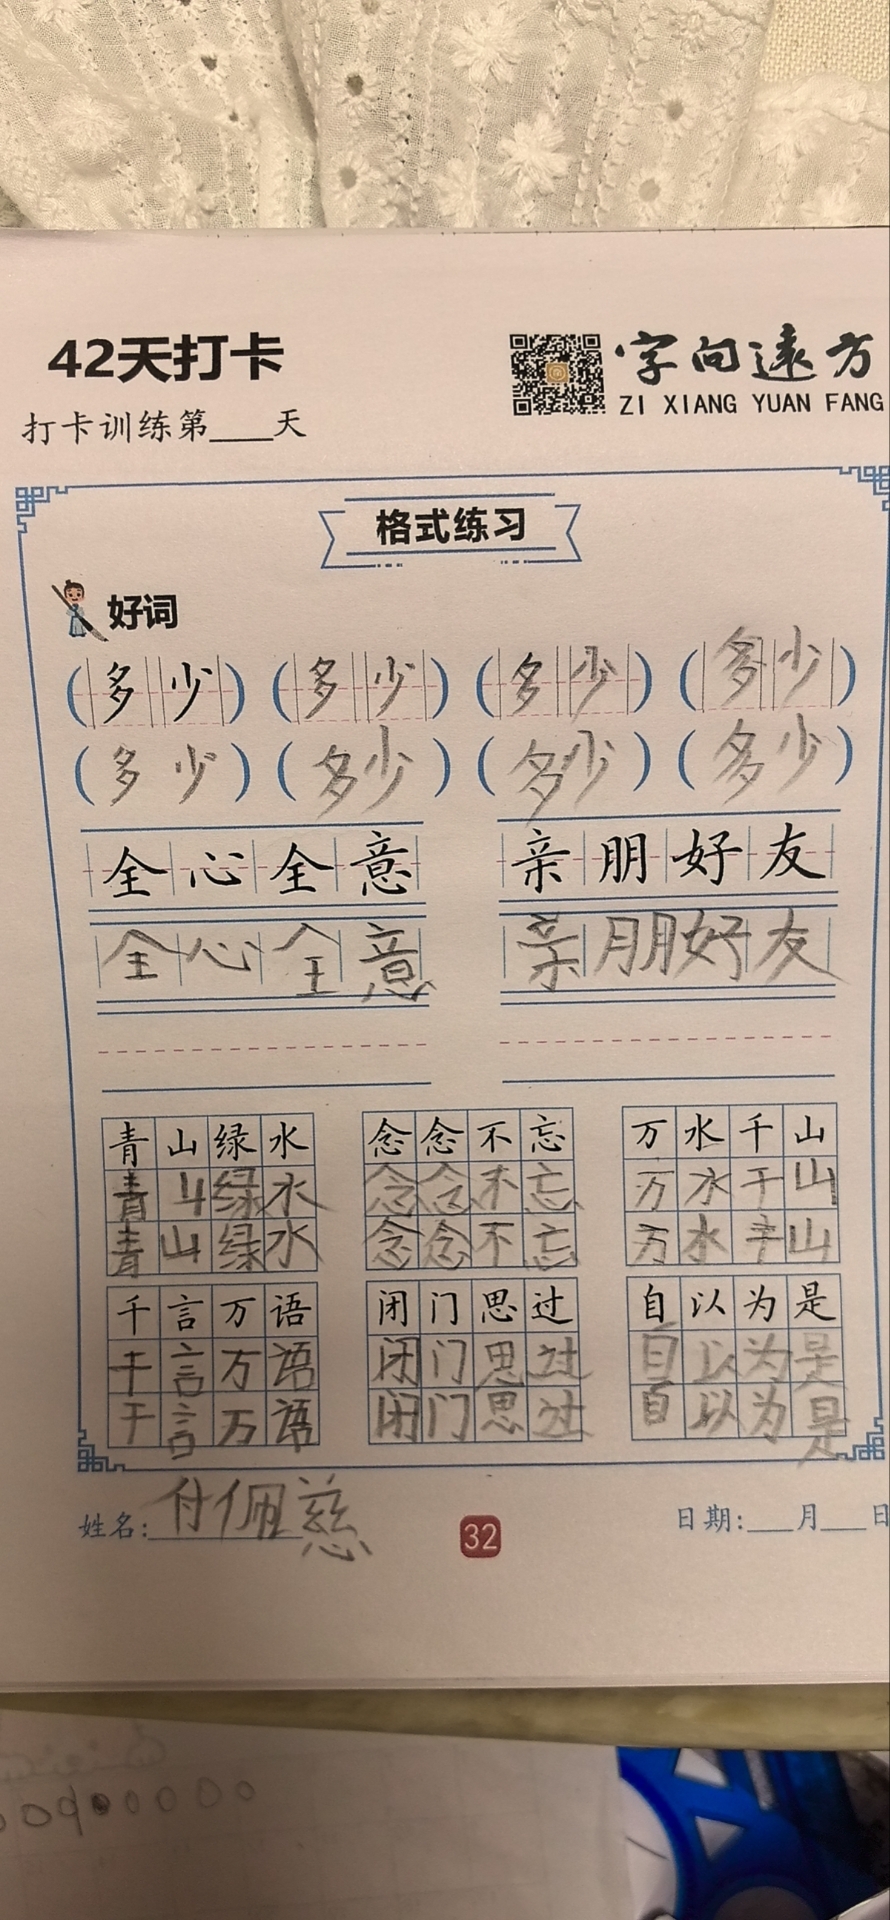 42天打卡
字向遠方
ZI XIANG YUAN FANG
打卡训练第___天
格式练习
好词
(多少) (多少) (多少) (多少)
(多少) (多少) (多少) (多少)
全心全意 亲朋好友
全心全意 亲朋好友
青山绿水 念念不忘 万水千山
青山绿水 念念不忘 万水千山
青山绿水 念念不忘 万水千山
千言万语 闭门思过 自以为是
千言万语 闭门思过 自以为是
千言万语 闭门思过 自以为是
姓名:付佩慈
32
日期:___月___日